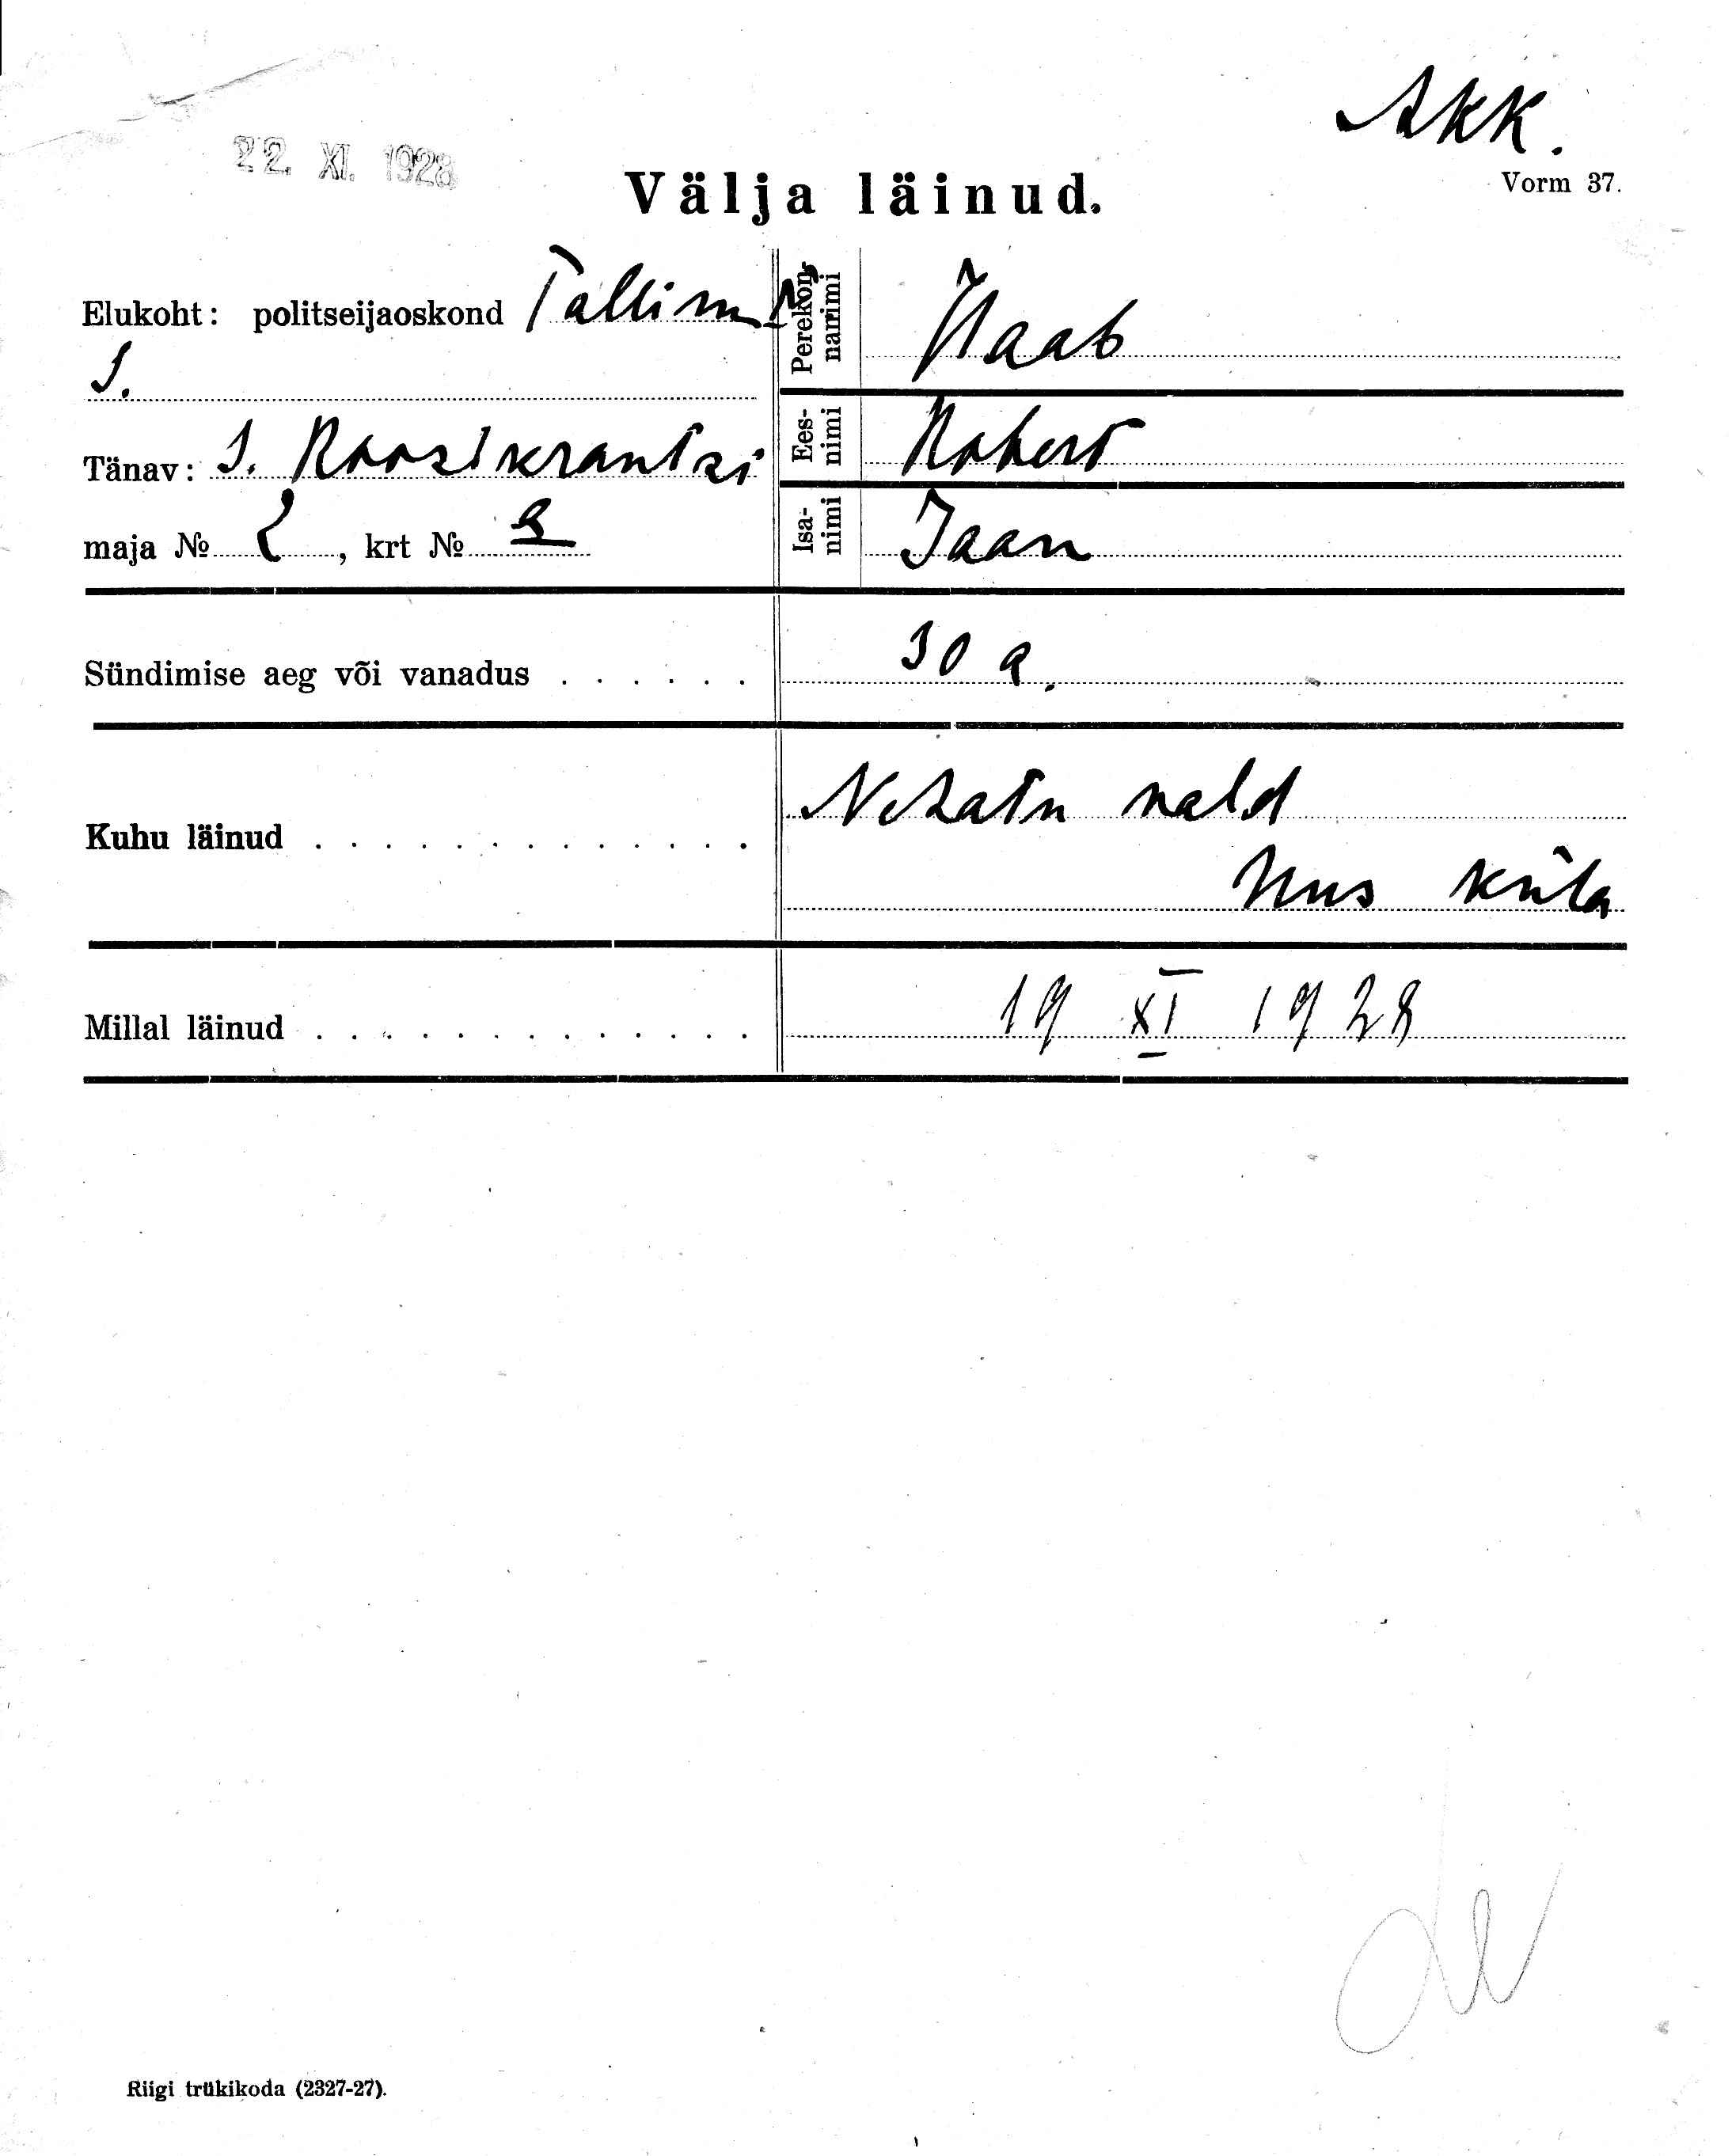 Akk.
22. XI. 1928
Vorm 37.
Välja läinud.
Elukoht: politseijaoskond Tallinn
Perekonnanimi
Haab
Tänav: S. Roosikrantsi
Eesnimi Robert
maja № 2, krt №
Isanimi Jaan
Sündimise aeg või vanadus . . . . . . 30 a.
Kuhu läinud . . . . . . . . . . . . . Nehatu vald
Uus küla
Millal läinud . . . . . . . . . . . . . 19 XI 1928
Riigi trükikoda (2327-27).